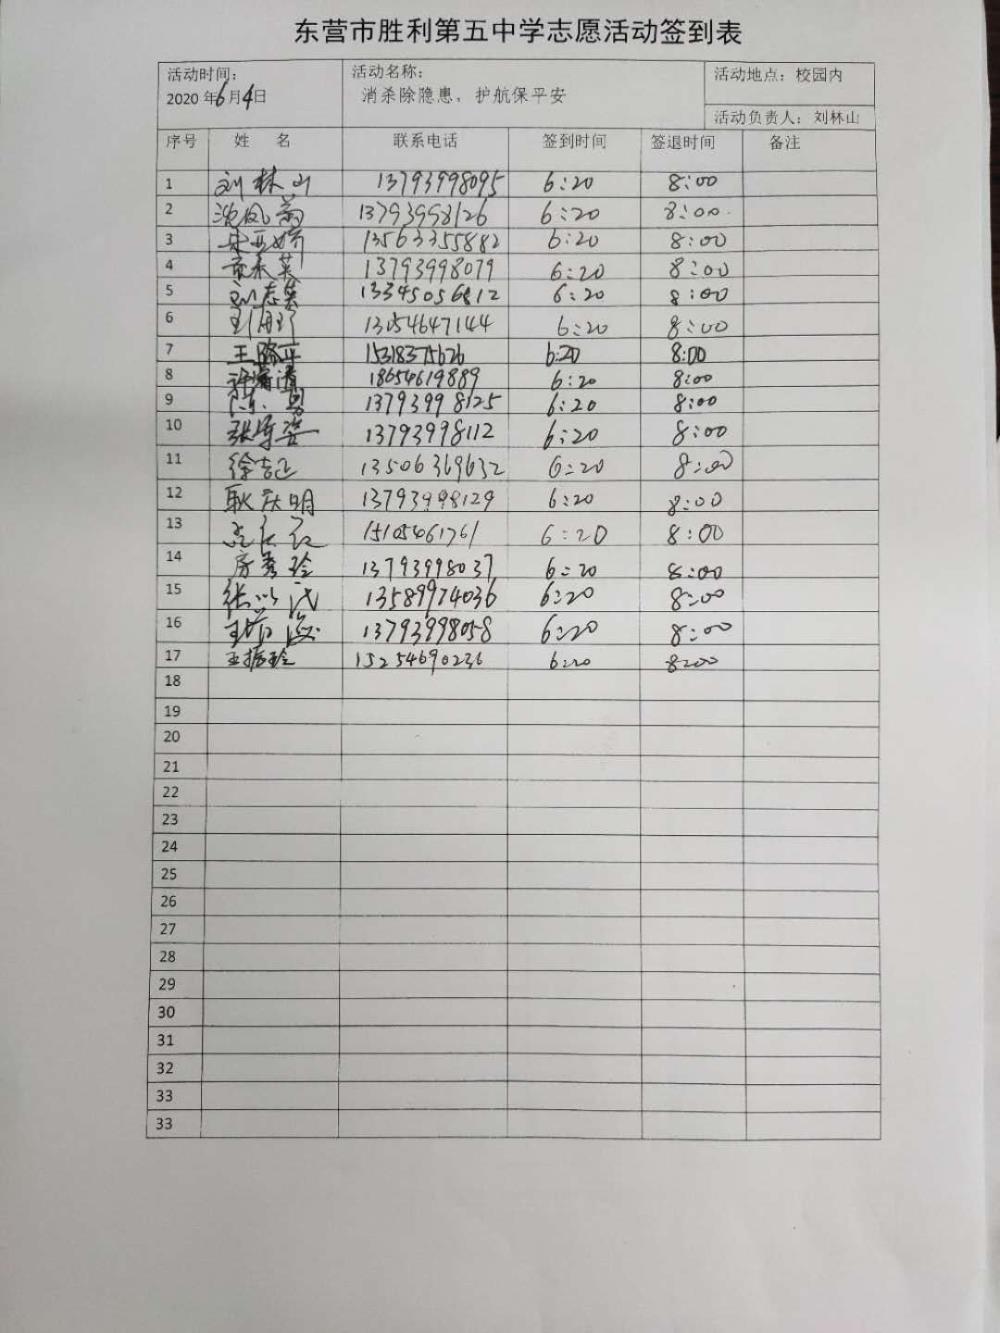 东营市胜利第五中学志愿活动签到表
活动时间： 活动名称： 活动地点：校园内
2020年6月4日 消杀除隐患，护航保平安
活动负责人：刘林山
序号 姓 名 联系电话 签到时间 签退时间 备注
1 刘林山 13793998095 6:20 8:00
2 沈凤 13793998126 6:20 8:00
3 13563355882 6:20 8:00
4 13793998079 6:20 8:00
5 刘志英 13345056812 6:20 8:00
6 13054647144 6:20 8:00
7 王路平 15318375626 6:20 8:00
8 18654619889 6:20 8:00
9 陈勇 13793998125 6:20 8:00
10 张 13793998112 6:20 8:00
11 徐志正 13506369632 6:20 8:00
12 耿庆明 13793998129 6:20 8:00
13 15105461761 6:20 8:00
14 房秀玲 13793998037 6:20 8:00
15 张以民 13589974036 6:20 8:00
16 13793998058 6:20 8:00
17 王振玲 15254690236 6:20 8:00
18
19
20
21
22
23
24
25
26
27
28
29
30
31
32
33
33